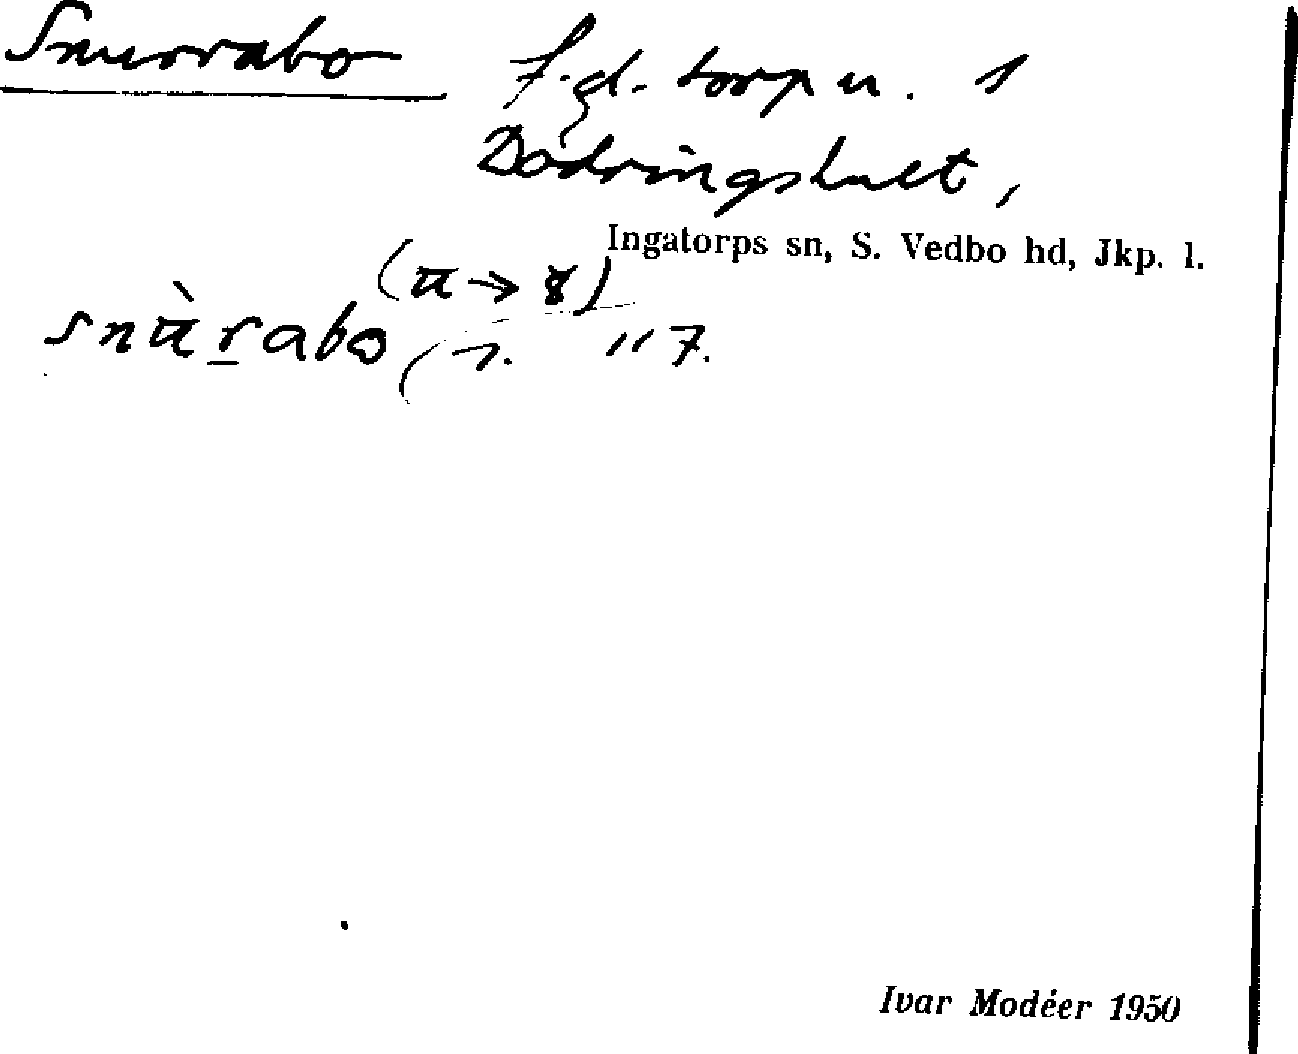 Snurrabo f.gl. torp u. 1
Dödringshult,
Ingatorps sn, S. Vedbo hd, Jkp. l.
(u → 8)
snùrabo
Ivar Modéer 1950